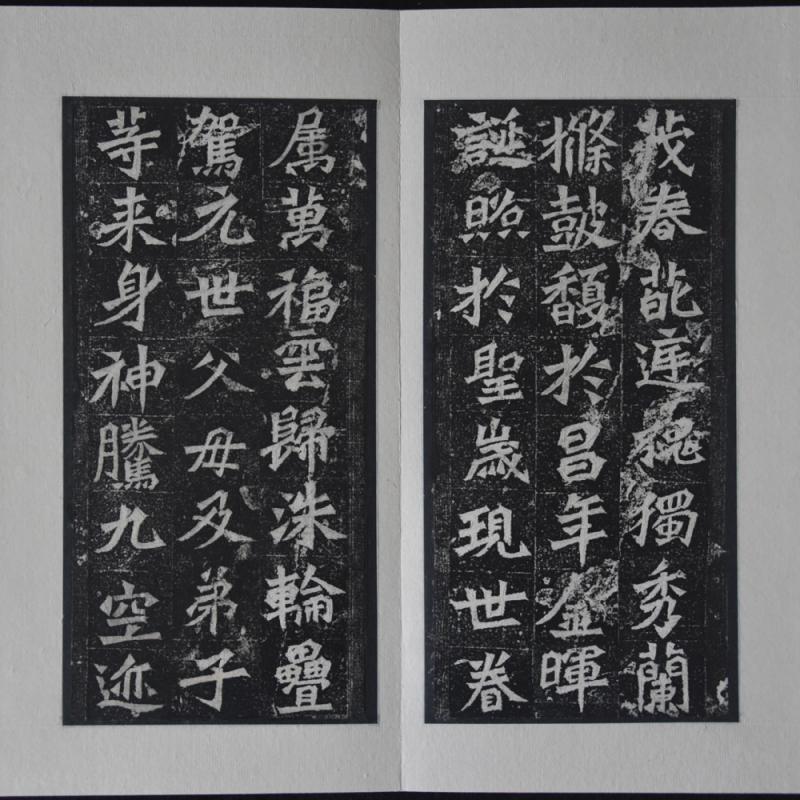 茂春葩庭槐獨秀蘭
樤皷馥於昌年金暉
誕照於聖歲現世眷
属萬福雲歸洙輪疊
駕元世父母及弟子
等来身神騰九空迹